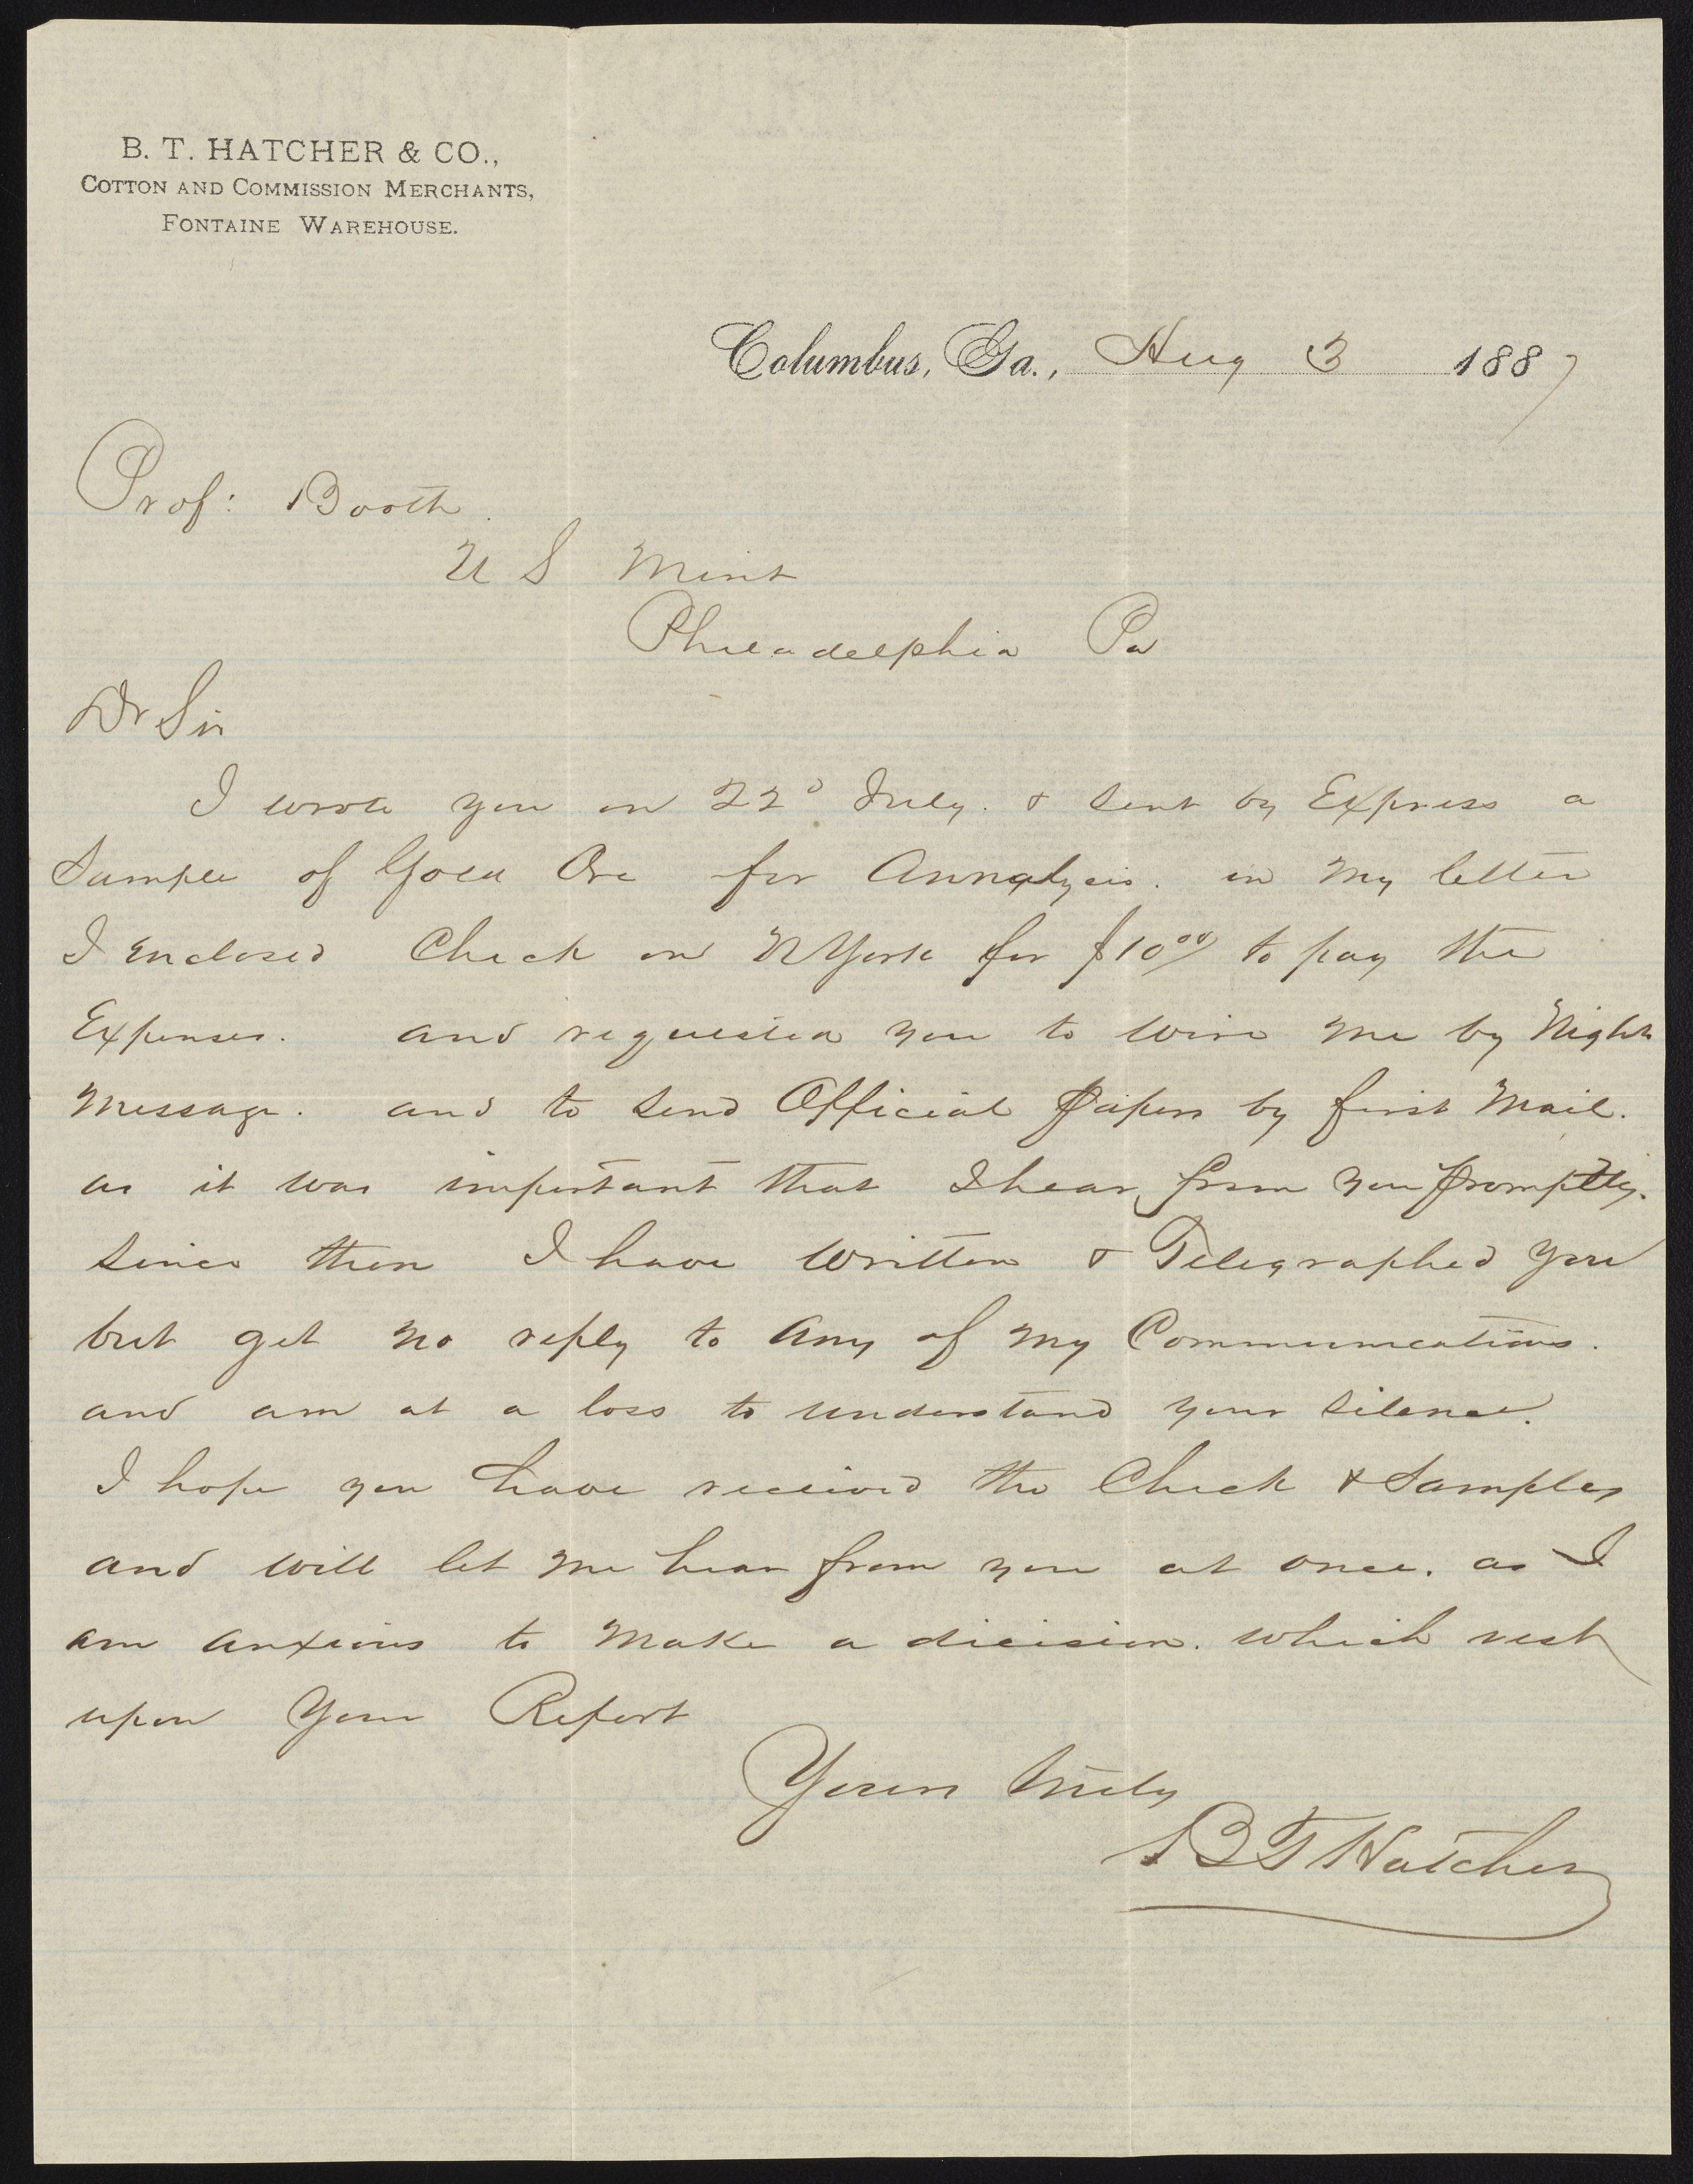 B. T. HATCHER & CO.,
COTTON AND COMMISSION MERCHANTS,
FONTAINE WAREHOUSE.
Columbus, Ga., Aug 3 1887
Prof: Booth.
U S Mint
Philadelphia Pa
Dr Sir
I wrote you on 22d July. & sent by Express a
Sample of Gold Ore for Annalysis. in my letter
I enclosed Check on N York for $10.00/ to pay the
Expenses. and requested you to wire me by Night
Message. and to send Official Papers by first Mail.
as it was important that I hear from you promptly.
since then I have written & Telegraphed you
but get no reply to any of my Communications.
and am at a loss to understand your silence.
I hope you have received the Check & Samples
and will let me hear from you at once. as I
am anxious to make a dicision. which rest
upon your Report
Yours truly
B T Hatcher